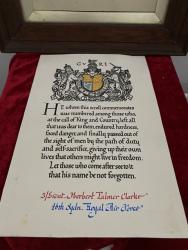 G VI R I
HE whom this scroll commemorates
was numbered among those who,
at the call of King and Country, left all
that was dear to them, endured hardness,
faced danger, and finally passed out of
the sight of men by the path of duty
and self-sacrifice, giving up their own
lives that others might live in freedom.
Let those who come after see to it
that his name be not forgotten.
Herbert Palmer Clarke
Sqdn. Royal Air Force